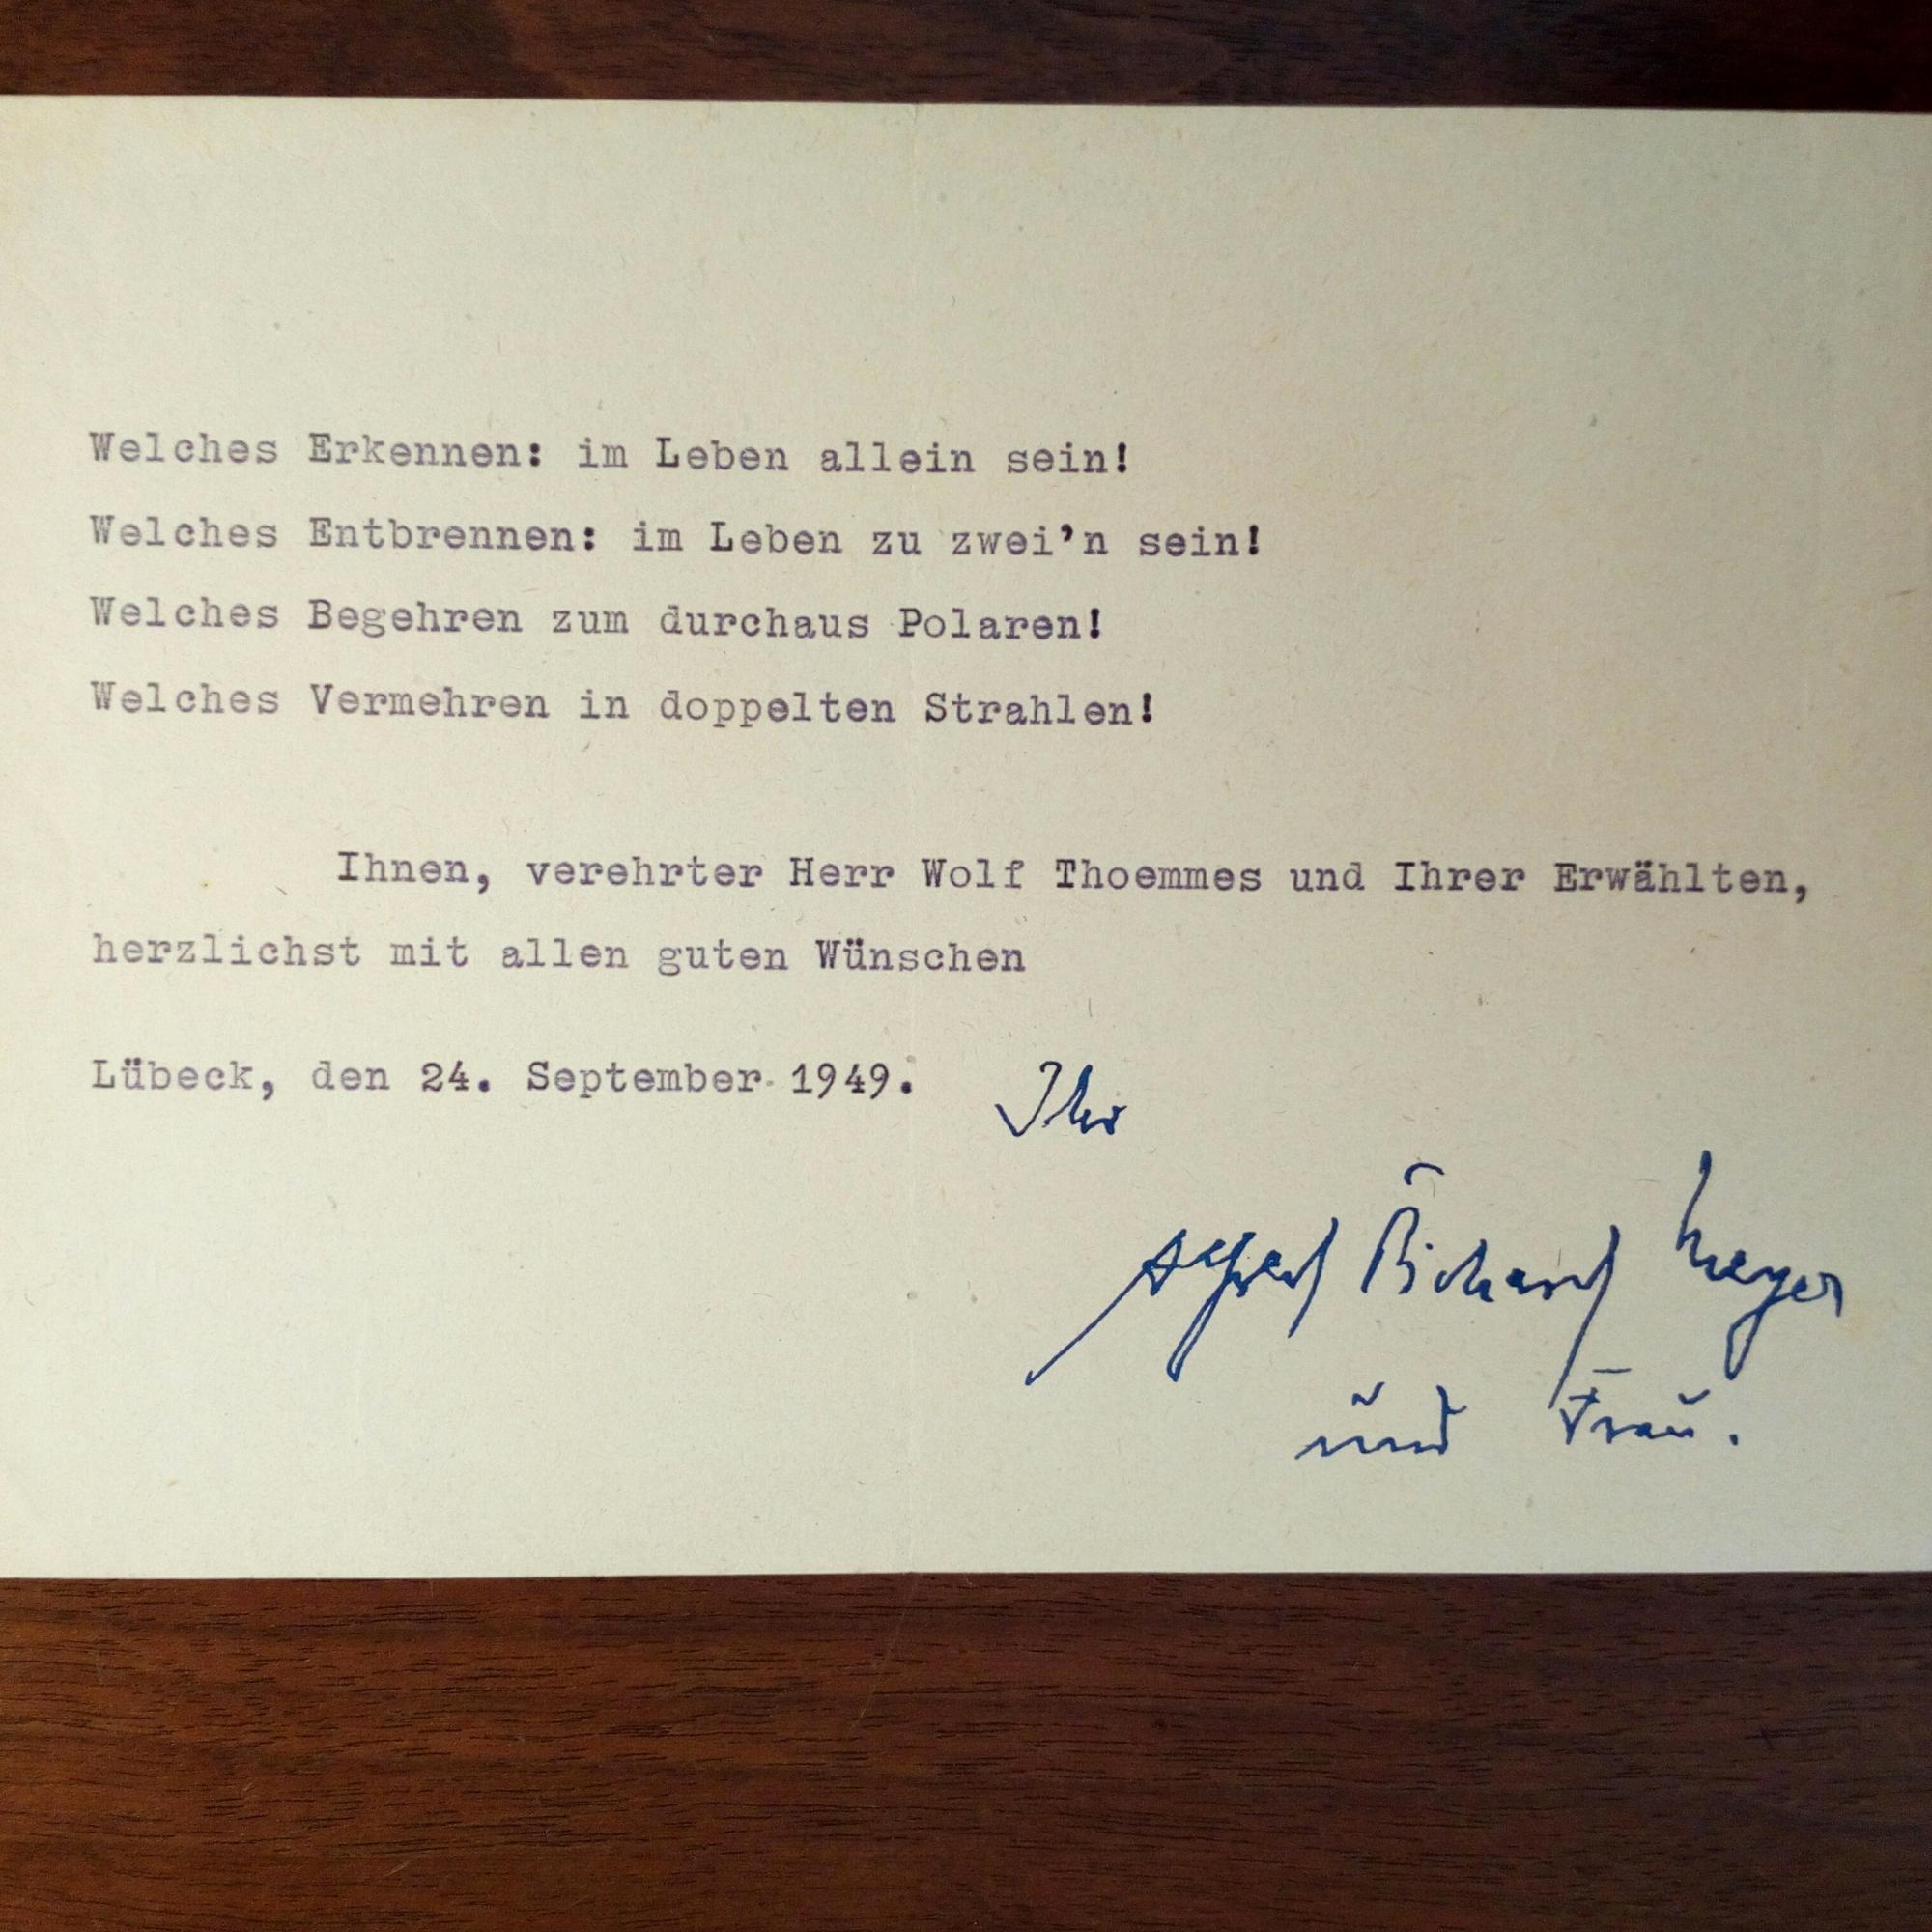 Welches Erkennen: im Leben allein sein!
Welches Entbrennen: im Leben zu zwei'n sein!
Welches Begehren zum durchaus Polaren!
Welches Vermehren in doppelten Strahlen!
Ihnen, verehrter Herr Wolf Thoemmes und Ihrer Erwählten,
herzlichst mit allen guten Wünschen
Lübeck, den 24. September 1949.
Ihr
Alfred Richard Meyer
und Frau.